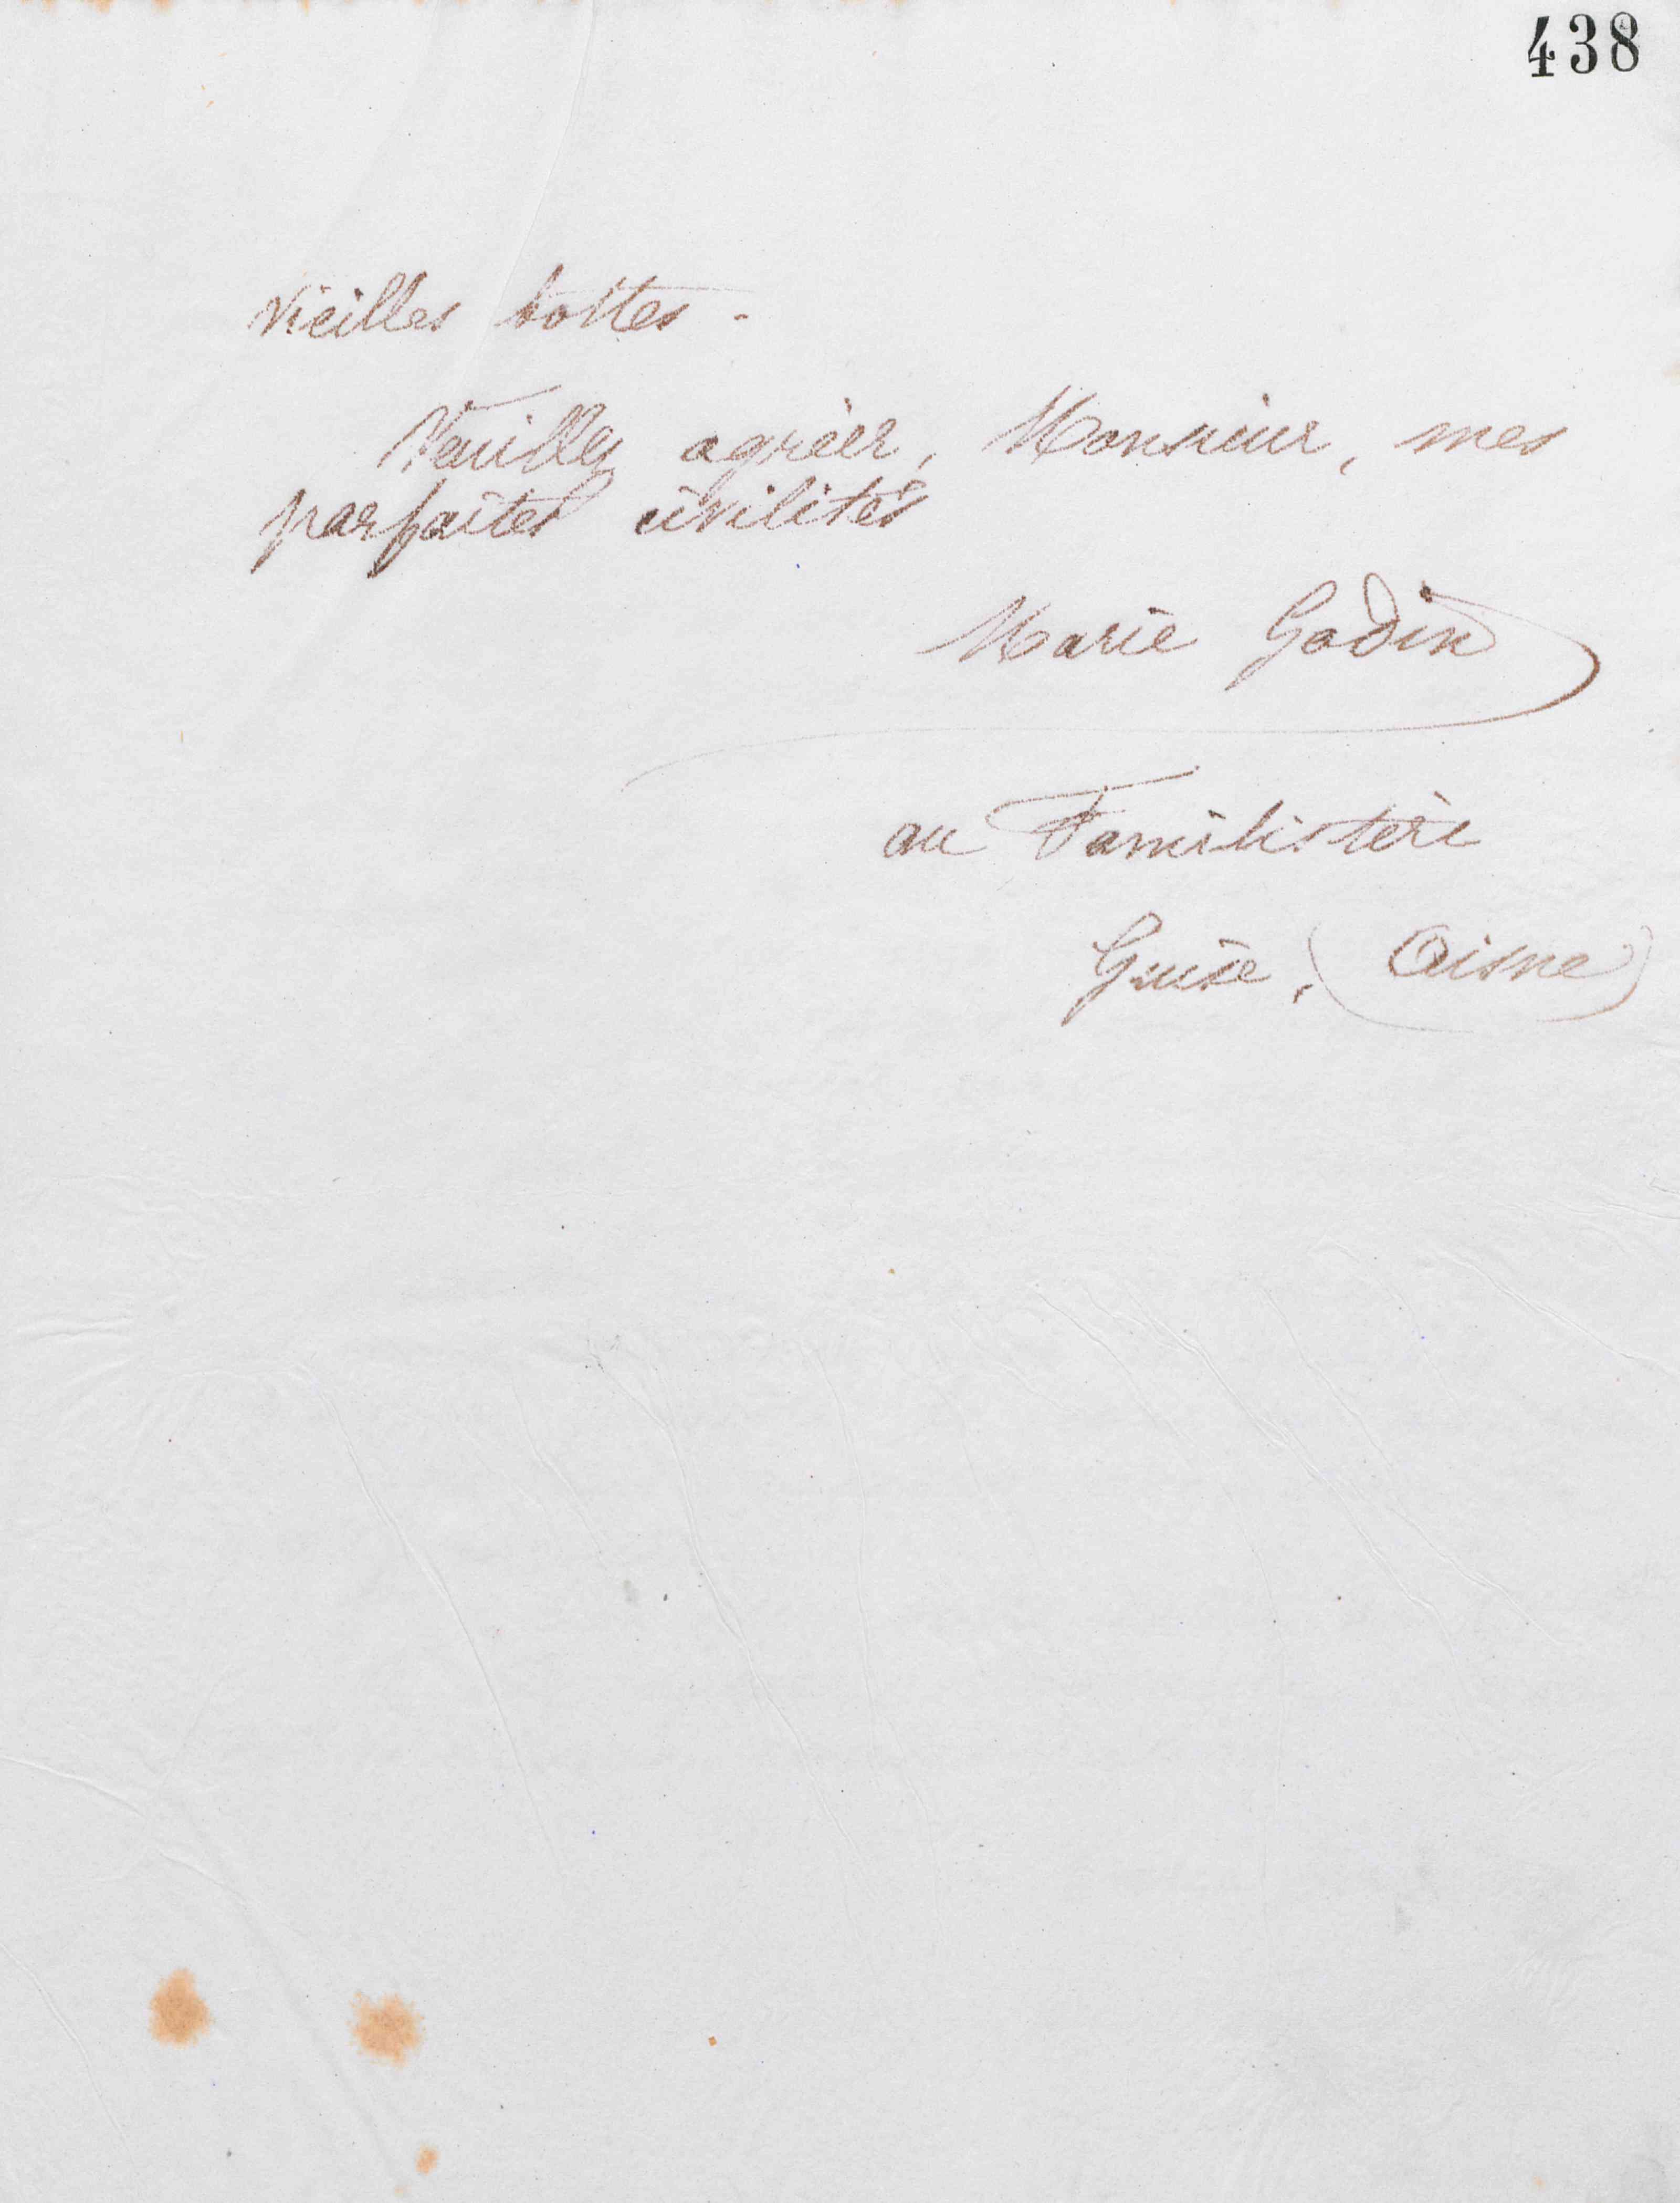 438
vieilles bottes.
Veuillez agréer, Monsieur, mes
parfaites civilités
Marie Godin
au Familistère
Guise, (Aisne)